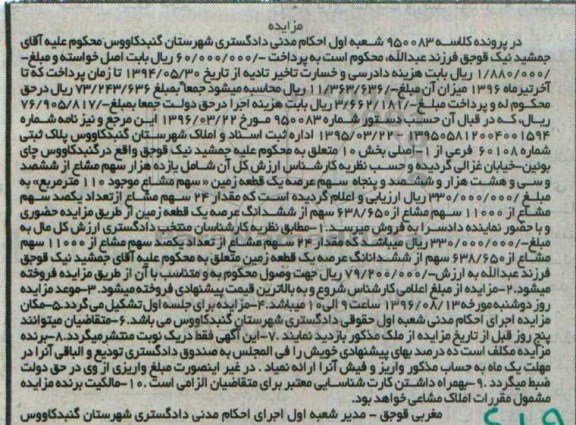 مزایده
در پرونده کلاسه ۹۵۰۰۸۳ شعبه اول احکام مدنی دادگستری شهرستان گنبدکاووس محکوم علیه آقای
جمشید نیک قوجق فرزند عبدالله، محکوم است به پرداخت -/۶۰/۰۰۰/۰۰۰ ریال بابت اصل خواسته و مبلغ-
/۱/۸۸۰/۰۰۰ ریال بابت هزینه دادرسی و خسارت تاخیر تادیه از تاریخ ۱۳۹۴/۰۵/۳۰ تا زمان پرداخت که تا
آخر تیرماه ۱۳۹۶ میزان آن مبلغ-/۱۱/۳۶۳/۶۳۶ ریال محاسبه میشود جمعا بمبلغ ۷۳/۲۴۳/۶۳۶ ریال در حق
محکوم له و پرداخت مبلغ-/۳/۶۶۲/۱۸۱ ریال بابت هزینه اجرا در حق دولت جمعا بمبلغ-/۷۶/۹۰۵/۸۱۷
ریال، که در قبال آن حسب دستور شماره ۹۵۰۰۸۳ مورخ ۱۳۹۶/۰۳/۲۲ این مرجع و نیز نامه شماره
۱۳۹۵۰۵۸۱۲۰۰۴۰۰۱۵۹۴ – ۱۳۹۵/۰۳/۲۲ اداره ثبت اسناد و املاک شهرستان گنبدکاووس پلاک ثبتی
شماره ۶۰۱۰۸ فرعی از ۱-اصلی بخش ۱۰ متعلق به محکوم علیه جمشید نیک قوجق واقع در گنبدکاووس چای
بوئین-خیابان غزالی گردیده و حسب نظریه کارشناس ارزش کل آن شامل یازده هزار سهم مشاع از ششصد
و سی و هشت هزار و ششصد و پنجاه سهم عرصه یک قطعه زمین « سهم مشاع موجود ۱۱۰ مترمربع» به
مبلغ /۳۳۰/۰۰۰/۰۰۰ ریال ارزیابی و اعلام گردیده است که مقدار ۲۴ سهم مشاع از تعداد یکصد سهم
مشاع از ۱۱۰۰۰ سهم مشاع از ۶۳۸/۶۵۰ سهم از ششدانگ عرصه یک قطعه زمین از طریق مزایده حضوری
و با حضور نماینده دادسرا به فروش میرسد.۱-مطابق نظریه کارشناسان منتخب دادگستری ارزش کل مال به
مبلغ-/۳۳۰/۰۰۰/۰۰۰ ریال میباشد که مقدار ۲۴ سهم مشاع از تعداد یکصد سهم مشاع از ۱۱۰۰۰ سهم
مشاع از ۶۳۸/۶۵۰ سهم از ششدانگانگ عرصه یک قطعه زمین متعلق به محکوم علیه آقای جمشید نیک قوجق
فرزند عبدالله به ارزش-/۷۹/۲۰۰/۰۰۰ ریال جهت وصول محکوم به و متناسب با آن از طریق مزایده فروخته
میشود.۲-مزایده از مبلغ اعلامی کارشناس شروع و به بالاترین قیمت پیشنهادی فروخته میشود.۳-موعد مزایده
روز دوشنبه مورخه ۱۳۹۶/۰۸/۱۳ ساعت ۹ الی ۱۰ میباشد.۴-مزایده برای جلسه اول تشکیل می گردد.۵-مکان
مزایده اجرای احکام مدنی شعبه اول حقوقی دادگستری شهرستان گنبدکاووس می باشد.۶-متقاضیان میتوانند
پنج روز قبل از تاریخ مزایده از ملک مذکور بازدید نمایند.۷-این آگهی فقط در یک نوبت منتشر میگردد.۸-برنده
مزایده مکلف است ده درصد بهای پیشنهادی خویش را فی المجلس به صندوق دادگستری تودیع و الباقی آنرا در
مهلت یک ماه به حساب مذکور واریز و فیش آنرا ارائه نمیاد. در غیر اینصورت مبلغ واریزی از وی در حق دولت
ضبط میگردد.۹-بهمراه داشتن کارت شناسایی معتبر برای متقاضیان الزامی است.۱۰-مالکیت برنده مزایده
مشمول مقررات املاک مشاعی خواهد بود.
مغربی قوجق – مدیر شعبه اول اجرای احکام مدنی دادگستری شهرستان گنبدکاووس